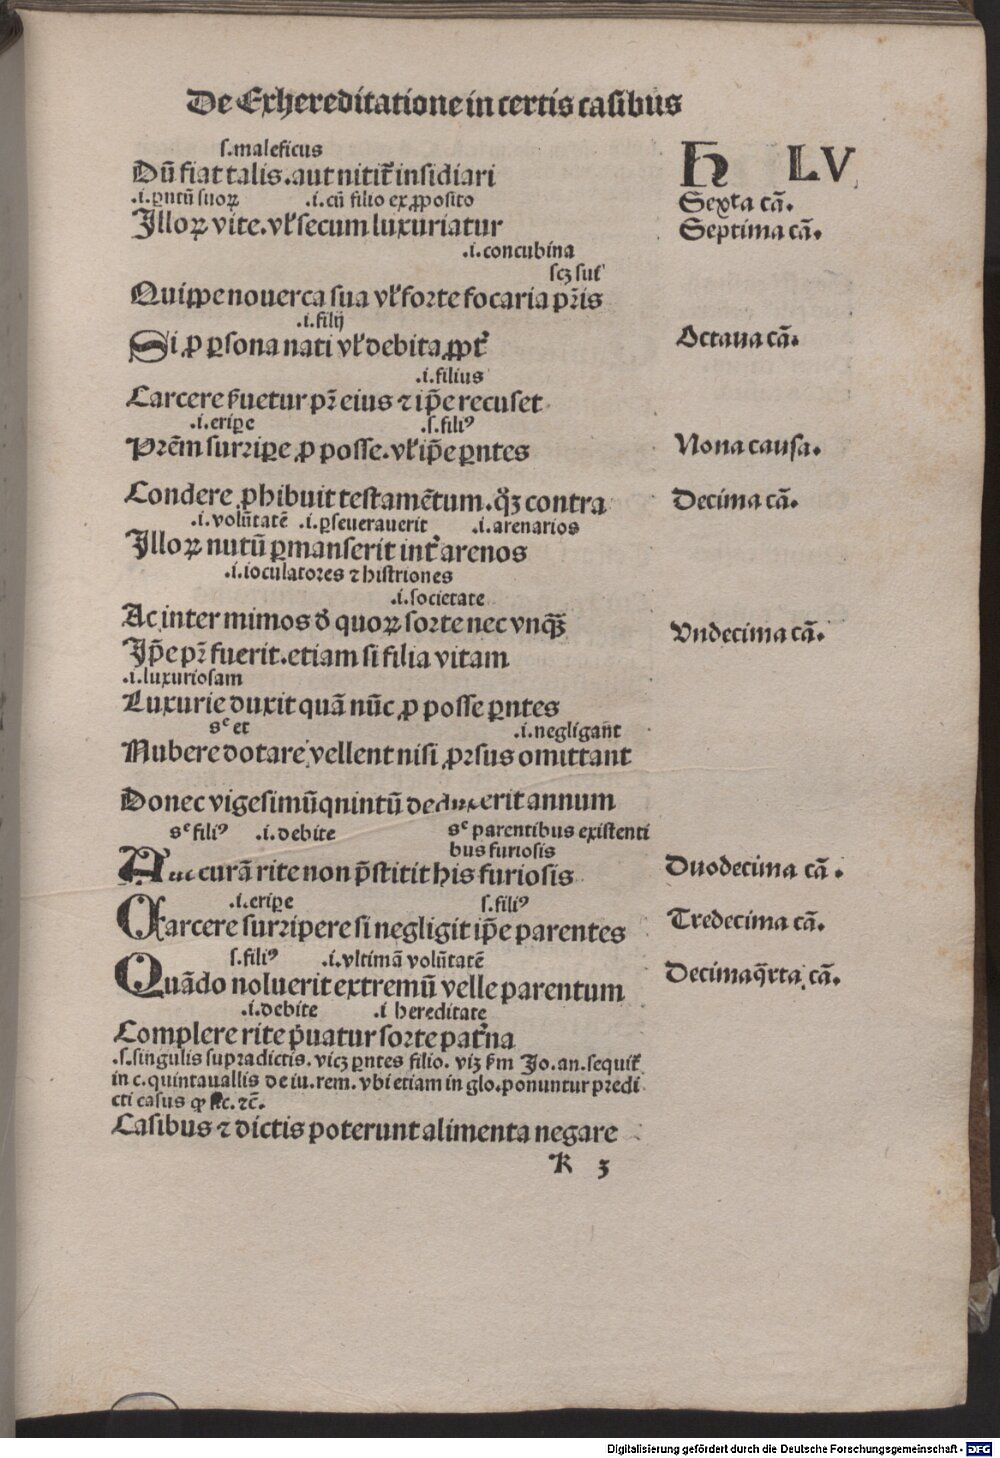 De Exhereditatione in certis casibus
H LV
s.maleficus
Dū fiat talis.aut nitit᷑ insidiari
.i.ꝑntū suoꝝ .i.cū filio ex ꝓposito
Sexta cā.
Illoꝝ vite.vl̛ secum luxuriatur
Septima cā.
.i.concubina
scꝫ sui᷑
Quippe nouerca sua vl̛ forte focaria pr̄is
.i.filij
Si ꝓ ꝑsona nati vl̛ debita ꝓpt᷑
Octaua cā.
.i.filius
Carcere ẜuetur pr̄ eius ⁊ ip̄e recuset
.i.eripe .s.filiꝰ
Prēm surripe ꝓ posse.vl̛ ip̄e ꝑntes
Nona causa.
Condere ꝓhibuit testamētum.qꝫ contra
Decima cā.
.i.volūtatē .i.ꝑseuerauerit .i.arenarios
Illoꝝ nutū ꝑmanserit int᷑ arenos
.i.ioculatores ⁊ histriones
.i.societate
Ac inter mimos đ quoꝝ sorte nec vnqꝫ̄
Vndecima cā.
Ip̄e pr̄ fuerit.etiam si filia vitam
.i.luxuriosam
Luxurie duxit quā nūc ꝓ posse ꝑntes
sᵉ et .i.negligant
Nubere dotare vellent nisi ꝓrsus omittant
Donec vigesimūqnintū deduxerit annum
sᵉ filiꝰ .i.debite sᵉ parentibus existenti
bus furiosis
Aut curā rite non p̄stitit his furiosis
Duodecima cā.
.i.eripe s.filiꝰ
Carcere surripere si negligit ip̄e parentes
Tredecima cā.
s.filiꝰ .i.vltimā volūtatē
Quādo noluerit extremū velle parentum
Decimaq̄rta cā.
.i.debite .i hereditate
Complere rite p̄uatur sorte pat᷑na
.s.singulis supradictis.vicꝫ ꝑntes filio. viꝫ ẜm Jo.an.sequit᷑
in c.quintauallis de iu.rem.vbi etiam in glo.ponuntur predi
cti casus ꝙ sic.⁊c̄.
Casibus ⁊ dictis poterunt alimenta negare
K 3
Digitalisierung gefördert durch die Deutsche Forschungsgemeinschaft - DFG